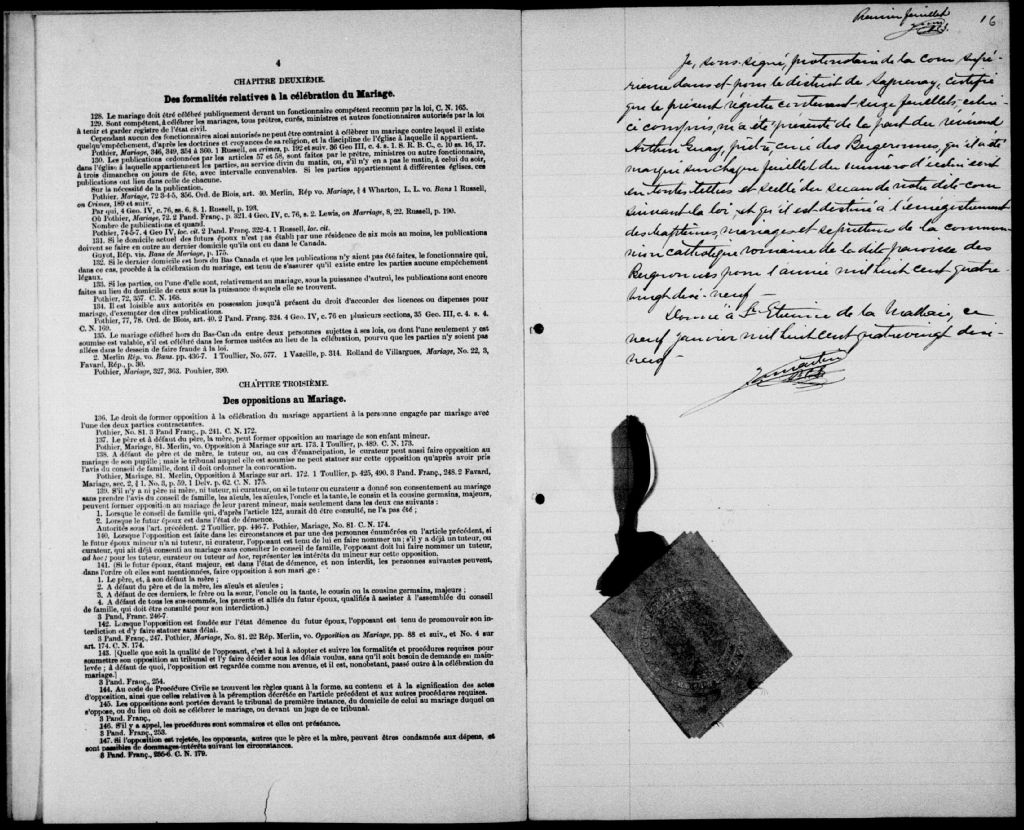 4
CHAPITRE DEUXIÈME.
Des formalités relatives à la célébration du Mariage.
128. Le mariage doit être célébré publiquement devant un fonctionnaire compétent reconnu par la loi, C. N. 165.
129. Sont compétent, à célébrer les mariages, tous prêtres, curés, ministres et autres fonctionnaires autorisés par la loi
à tenir et garder registre de l'état civil.
Cependant aucun des fonctionnaires ainsi autorisés ne peut être contraint à célébrer un mariage contre lequel il existe
quelqu'empêchement, d'après les doctrines et croyances de sa religion, et la discipline de l'église à laquelle il appartient.
Pothier, Mariage, 346, 349, 354 à 360. 1 Russell, on crimes, p. 192 et suiv. 36 Geo III, c. 4. s. 1. S. R. B. C., c. 10 ss. 16, 17.
130. Les publications ordonnées par les articles 57 et 58, sont faites par le prêtre, ministres ou autre fonctionnaire,
dans l'église à laquelle appartiennent les parties, au service divin du matin, ou, s'il n'y en a pas le matin, à celui du soir,
à trois dimanches ou jours de fête, avec intervalle convenables. Si les parties appartiennent à différentes églises, ces
publications ont lieu dans celle de chacune.
Sur la nécessité de la publication.
Pothier, Mariage, 72 3-4-5, 356. Ord. de Blois, art. 40. Merlin, Rép vo. Mariage, § 4 Wharton, L. L. vo. Bans 1 Russell,
on Crimes, 189 et suiv.
Par qui, 4 Geo. IV, c. 76, ss. 6, 8. 1. Russell, p. 193.
Où Pothier, Mariage, 72. 2 Pand. Franç., p. 321. 4 Geo. IV, c. 76, s. 2. Lewis, on Marriage, 8, 22. Russell, p. 190.
Nombre de publications et quand.
Pothier, 74-5-7. 4 Geo IV, loc. cit. 2 Pand. Franç. 322-4. 1 Russell, loc. cit.
131. Si le domicile actuel des futurs époux n'est pas établi par une résidence de six mois au moins, les publications
doivent se faire en outre au dernier domicile qu'ils ont eu dans le Canada.
Guyot, Rép. vis. Bans de Mariage, p. 175.
132. Si le dernier domicile est hors du Bas Canada et que les publications n'y aient pas été faites, le fonctionnaire qui,
dans ce cas, procède à la célébration du mariage, est tenu de s'assurer qu'il existe entre les parties aucune empêchement
légaux.
133. Si les parties, ou l'une d'elle, sont, relativement au mariage, sous la puissance d'autrui, les publications sont encore
faites au lieu du domicile de ceux sous la puissance desquels elle se trouvent.
Pothier, 72, 357. C. N. 168.
134. Il est loisible aux autorités en possession jusqu'à présent du droit d'accorder des licences ou dispenses pour
mariage, d'exempter des dites publications.
Pothier, 77, 78. Ord. de Blois, art. 40. 2 Pand. Franç. 324. 4 Geo IV, c. 76 en plusieurs sections, 35 Geo III, c. 4. s. 4.
C. N. 169.
135. Le mariage célébré hors du Bas-Canada entre deux personnes sujettes à ses lois, ou dont l'une seulement y est
soumise est valable, s'il est célébré dans les formes usitées au lieu de la célébration, pourvu que les parties n'y soient pas
allées dans le dessein de faire fraude à la loi.
2. Merlin Rép. vo. Bans. pp. 436-7. 1 Toullier, No. 577. 1 Vazeille, p. 314. Rolland de Villargues, Mariage, No. 22, 3,
Favard, Rép., p. 30.
Pothier, Mariage, 327, 363. Pouhier, 390.
CHAPITRE TROISIÈME.
Des oppositions au Mariage.
136. Le droit de former opposition à la célébration du mariage appartient à la personne engagée par mariage avec
l'une des deux parties contractantes.
Pothier, No. 81. 3 Pand Franç., p. 241. C. N. 172.
137. Le père et à défaut du père, la mère, peut former opposition au mariage de son enfant mineur.
Pothier, Mariage, 81. Merlin, vo. Opposition à Mariage sur art. 173. 1 Toullier, p. 489. C. N. 173.
138. A défaut de père et de mère, le tuteur ou, au cas d'émancipation, le curateur peut aussi faire opposition au
mariage de son pupille ; mais le tribunal auquel elle est soumise ne peut statuer sur cette opposition qu'après avoir pris
l'avis du conseil de famille, dont il doit ordonner la convocation.
Pothier, Mariage, 81. Merlin, Opposition à Mariage sur art. 172. 1 Toullier, p. 425, 490. 3 Pand. Franç., 248. 2 Favard,
Mariage, sec. 2, § 1. No. 3, p. 59. 1 Delv. p. 62. C. N. 175.
139. S'il n'y a ni père ni mère, ni tuteur, ni curateur, ou si le tuteur ou curateur a donné son consentement au mariage
sans prendre l'avis du conseil de famille, les aïeuls, les aïeules, l'oncle et la tante, le cousin et la cousine germains, majeurs,
peuvent former opposition au mariage de leur parent mineur, mais seulement dans les deux cas suivants :
1. Lorsque le conseil de famille qui, d'après l'article 122, aurait dû être consulté, ne l'a pas été ;
2. Lorsque le futur époux est dans l'état de démence.
Autorités sous l'art. précédent. 2 Toullier, pp. 446-7. Pothier, Mariage, No. 81. C. N. 174.
140. Lorsque l'opposition est faite dans les circonstances et par une des personnes énumérées en l'article précédent, si
le futur époux mineur n'a ni tuteur, ni curateur, l'opposant est tenu de lui en faire nommer un ; s'il y a déjà un tuteur, ou
curateur, qui ait déjà consenti au mariage sans consulter le conseil de famille, l'opposant doit lui faire nommer un tuteur,
ad hoc ; pour les tuteur, curateur ou tuteur ad hoc, représenter les intérêts du mineur sur cette opposition.
141. (Si le futur époux, étant majeur, est dans l'état de démence, et non interdit, les personnes suivantes peuvent,
dans l'ordre où elles sont mentionnées, faire opposition à son mariage :
1. Le père, et, à son défaut la mère ;
2. A défaut du père et de la mère, les aïeuls et aïeules ;
3. A défaut de ces derniers, le frère ou la sœur, l'oncle ou la tante, le cousin ou la cousine germains, majeurs ;
4. A défaut de tous les sus-nommés, les parents et alliés du futur époux, qualifiés à assister à l'assemblée du conseil
de famille, qui doit être consulté pour son interdiction.)
3 Pand, Franç. 246-7
142. Lorsque l'opposition est fondée sur l'état démence du futur époux, l'opposant est tenu de promouvoir son in-
terdiction et d'y faire statuer sans délai.
3 Pand. Franç., 247. Pothier, Mariage, No. 81. 22 Rép. Merlin, vo. Opposition au Mariage, pp. 88 et suiv., et No. 4 sur
art. 174. C. N. 174.
143. [Quelle que soit la qualité de l'opposant, c'est à lui à adopter et suivre les formalités et procédures requises pour
soumettre son opposition au tribunal et l'y faire décider sous les délais voulus, sans qu'il soit besoin de demande en main-
levée ; à défaut de quoi, l'opposition est regardée comme non avenue, et il est, nonobstant, passé outre à la célébration du
mariage.]
3 Pand. Franç., 254.
144. Au code de Procédure Civile se trouvent les règles quant à la forme, au contenu et à la signification des actes
d'opposition, ainsi que celles relatives à la péremption décrétée en l'article précédent et aux autres procédures requises.
145. Les oppositions sont portées devant le tribunal de première instance, du domicile de celui au mariage duquel on
s'oppose, ou du lieu où doit se célébrer le mariage, ou devant un juge de ce tribunal.
3 Pand. Franç.,
146. S'il y a appel, les procédures sont sommaires et elles ont préséance.
3 Pand. Franç., 253.
147. Si l'opposition est rejetée, les opposants, autres que le père et la mère, peuvent être condamnés aux dépens, et
sont passibles de dommages-intérêts suivant les circonstances.
3 Pand. Franç., 256-6. C. N. 179.
Premier feuillet
16
Je, soussigné, protonotaire de la cour supé-
rieure dans et pour le district de Saguenay, certifie
que le présent régistre contenant seize feuillets, celui-
ci compris, m'a été présenté de la part du révérend
Arthur Guay, prêtre, curé des Bergeronnes, qu'il a été
marqué sur chaque feuillet du numéro d'icelui écrit
en toutes lettres et scellé du sceau de notre dite cour
suivant la loi et qu'il est destiné à l'enregistrement
des baptêmes, mariages et sépultures de la commu-
nion catholique romaine de la dite paroisse des
Bergeronnes pour l'année mil huit cent quatre-
vingt dix-neuf-
Donné à St Etienne de la Malbaie, ce
neuf janvier mil huit cent quatre vingt dix-
neuf-